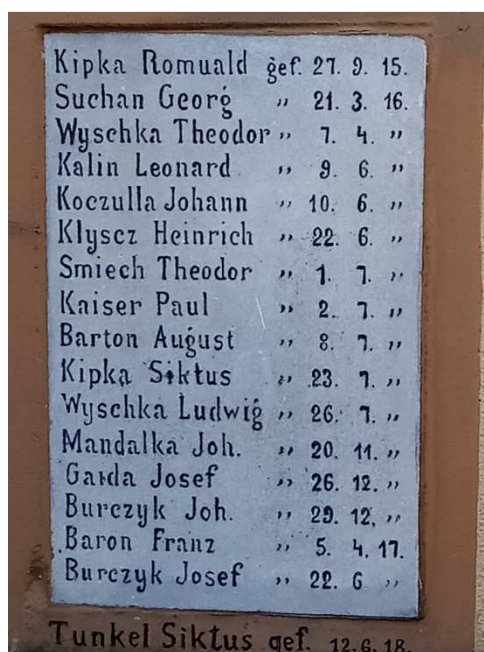 Kipka Romuald gef. 27. 9. 15.
Suchan Georg „ 21. 3. 16.
Wyschka Theodor „ 7. 4. „
Kalin Leonard „ 9. 6. „
Koczulla Johann „ 10. 6. „
Klyscz Heinrich „ 22. 6. „
Smiech Theodor „ 1. 7. „
Kaiser Paul „ 2. 7. „
Barton August „ 8. 7. „
Kipka Siktus „ 23. 7. „
Wyschka Ludwig „ 26. 7. „
Mandalka Joh. „ 20. 11. „
Garda Josef „ 26. 12. „
Burczyk Joh. „ 29. 12, „
Baron Franz „ 5. 4. 17.
Burczyk Josef „ 22. 6 „
Tunkel Siktus gef. 12. 6. 18.